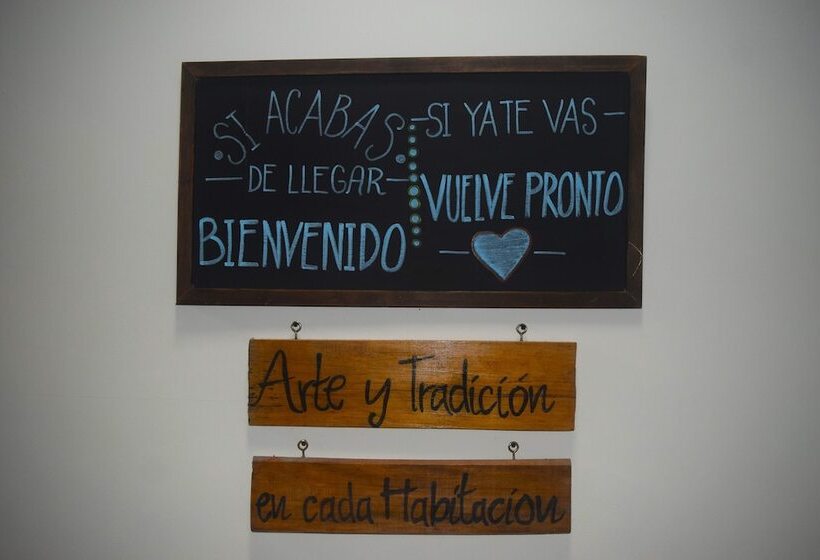 SI ACABAS
DE LLEGAR
BIENVENIDO
SI YA TE VAS
VUELVE PRONTO
Arte y Tradición
en cada Habitacion